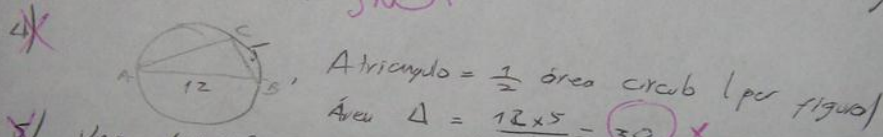 4)
C
5
A
12
B
, A triangulo = 1/2 área circulo (per figura)
Área Δ = 12x5 = 30 x
5)